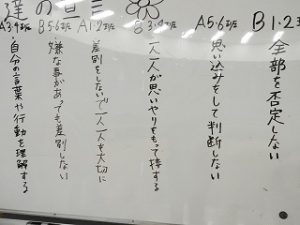 B1·2班
全部を否定しない
A5·6班
思い込みをして判断しない
B3·4班
一人一人が思いやりをもって接する
A1·2班
差別をしないで一人一人を大切に
B5·6班
嫌な事があっても差別しない
A3·4班
・自分の言葉や行動を理解する